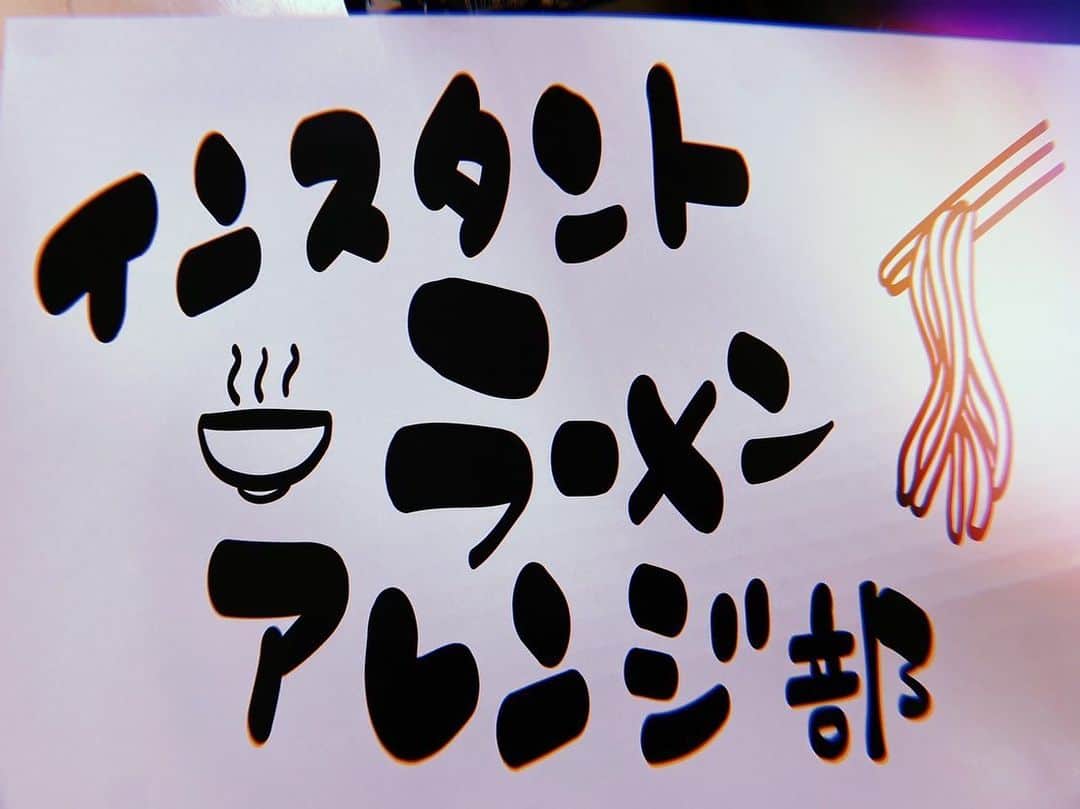 インスタント
ラーメン
アレンジ部